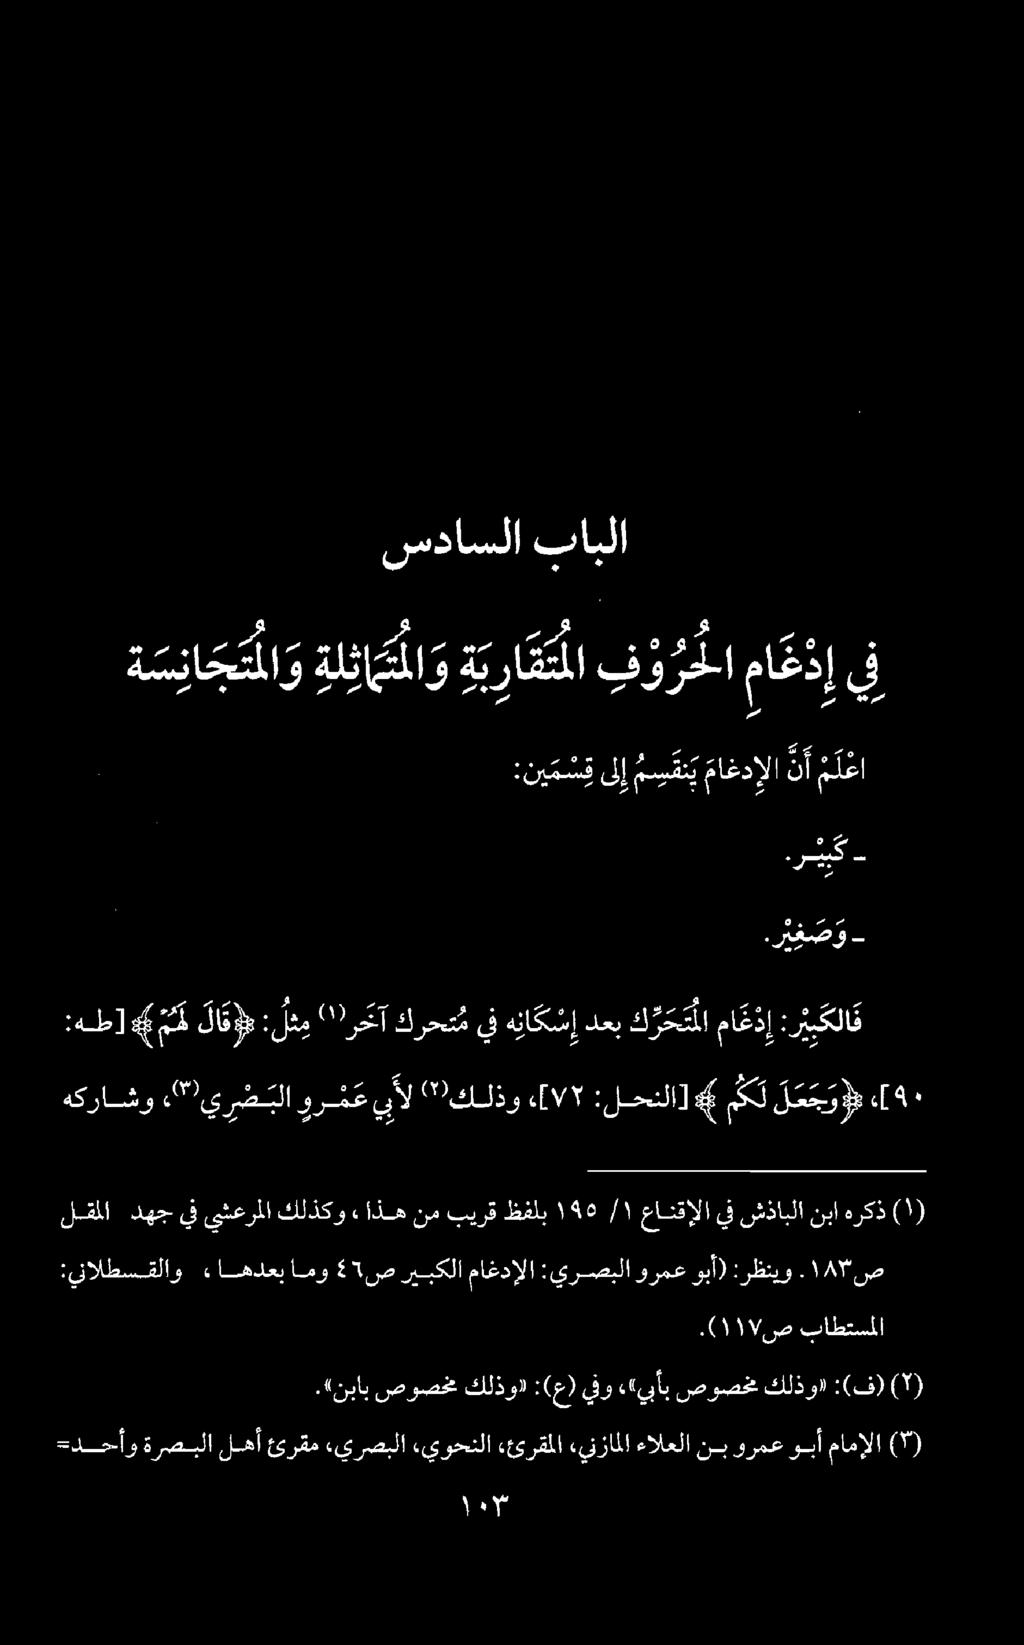 الباب السادس
فِي إِدْغَامِ الْحُرُوْفِ المُتَقَارِبَةِ وَالمُتَمَاثِلةِ وَالمُتَجَانِسَة
اعْلَمْ أَنَّ الإدغامَ يَنقَسِمُ إِلى قِسْمَين:
- كَبِيْر.
- وَصَغِيْر.
فَالكَبِيْر: إِدْغَام المُتَحَرِّك بعد إِسْكَانِه في مُتحرك آخَر(١) مِثلُ: ﴿قَالَ لَهُمْ﴾ [طـه:
٩٠]، ﴿وَجَعَلَ لَكُم﴾ [النحل: ٧٢]، وذلك(٢) لأَبِي عَمْرٍو البَصْرِي(٣)، وشاركه
(١) ذكره ابن الباذش في الإقناع ١/ ١٩٥ بلفظ قريب من هذا، وكذلك المرعشي في جهد المقل
ص١٨٣. وينظر: (أبو عمرو البصري: الإدغام الكبير ص٤٦ وما بعدها، والقسطلاني:
المستطاب ص١١٧).
(٢) (ف): «وذلك مخصوص بأبي»، وفي (ع): «وذلك مخصوص بابن».
(٣) الإمام أبو عمرو بن العلاء المازني، المقرئ، النحوي، البصري، مقرئ أهل البصرة وأحد=
١٠٣